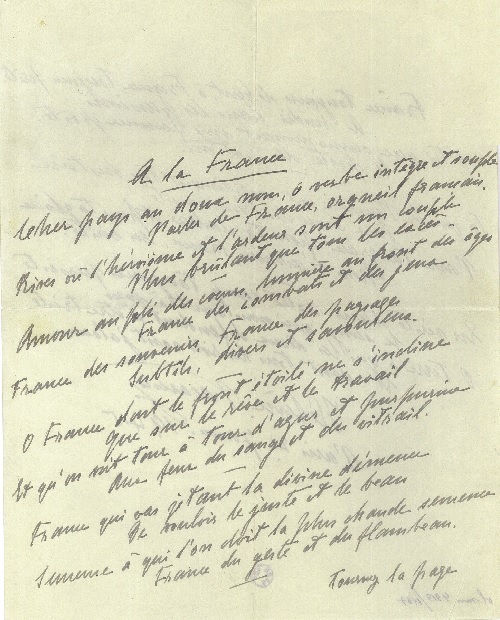 A la France
Cher pays au doux nom, ô verbe intègre et souple
Parler de France, orgueil français.
Rives où l'héroïsme et l'ardeur sont un couple
Plus brûlant que tous les excès.
Amour au fond des cœurs, lumière au front des âges
France des combats et des jeux
France des souvenirs, France des paysages
Subtils, divers et savoureux.
O France dont le front étoilé ne s'incline
Que sur le rêve et le travail
Et qu'on voit tour à tour d'azur et purpurine
Au feu du sang et du vitrail.
France qui vas jetant la divine démence
De vouloir le juste et le beau
Semeuse à qui l'on doit la plus chaude semence
France du geste et du flambeau.
Tournez la page